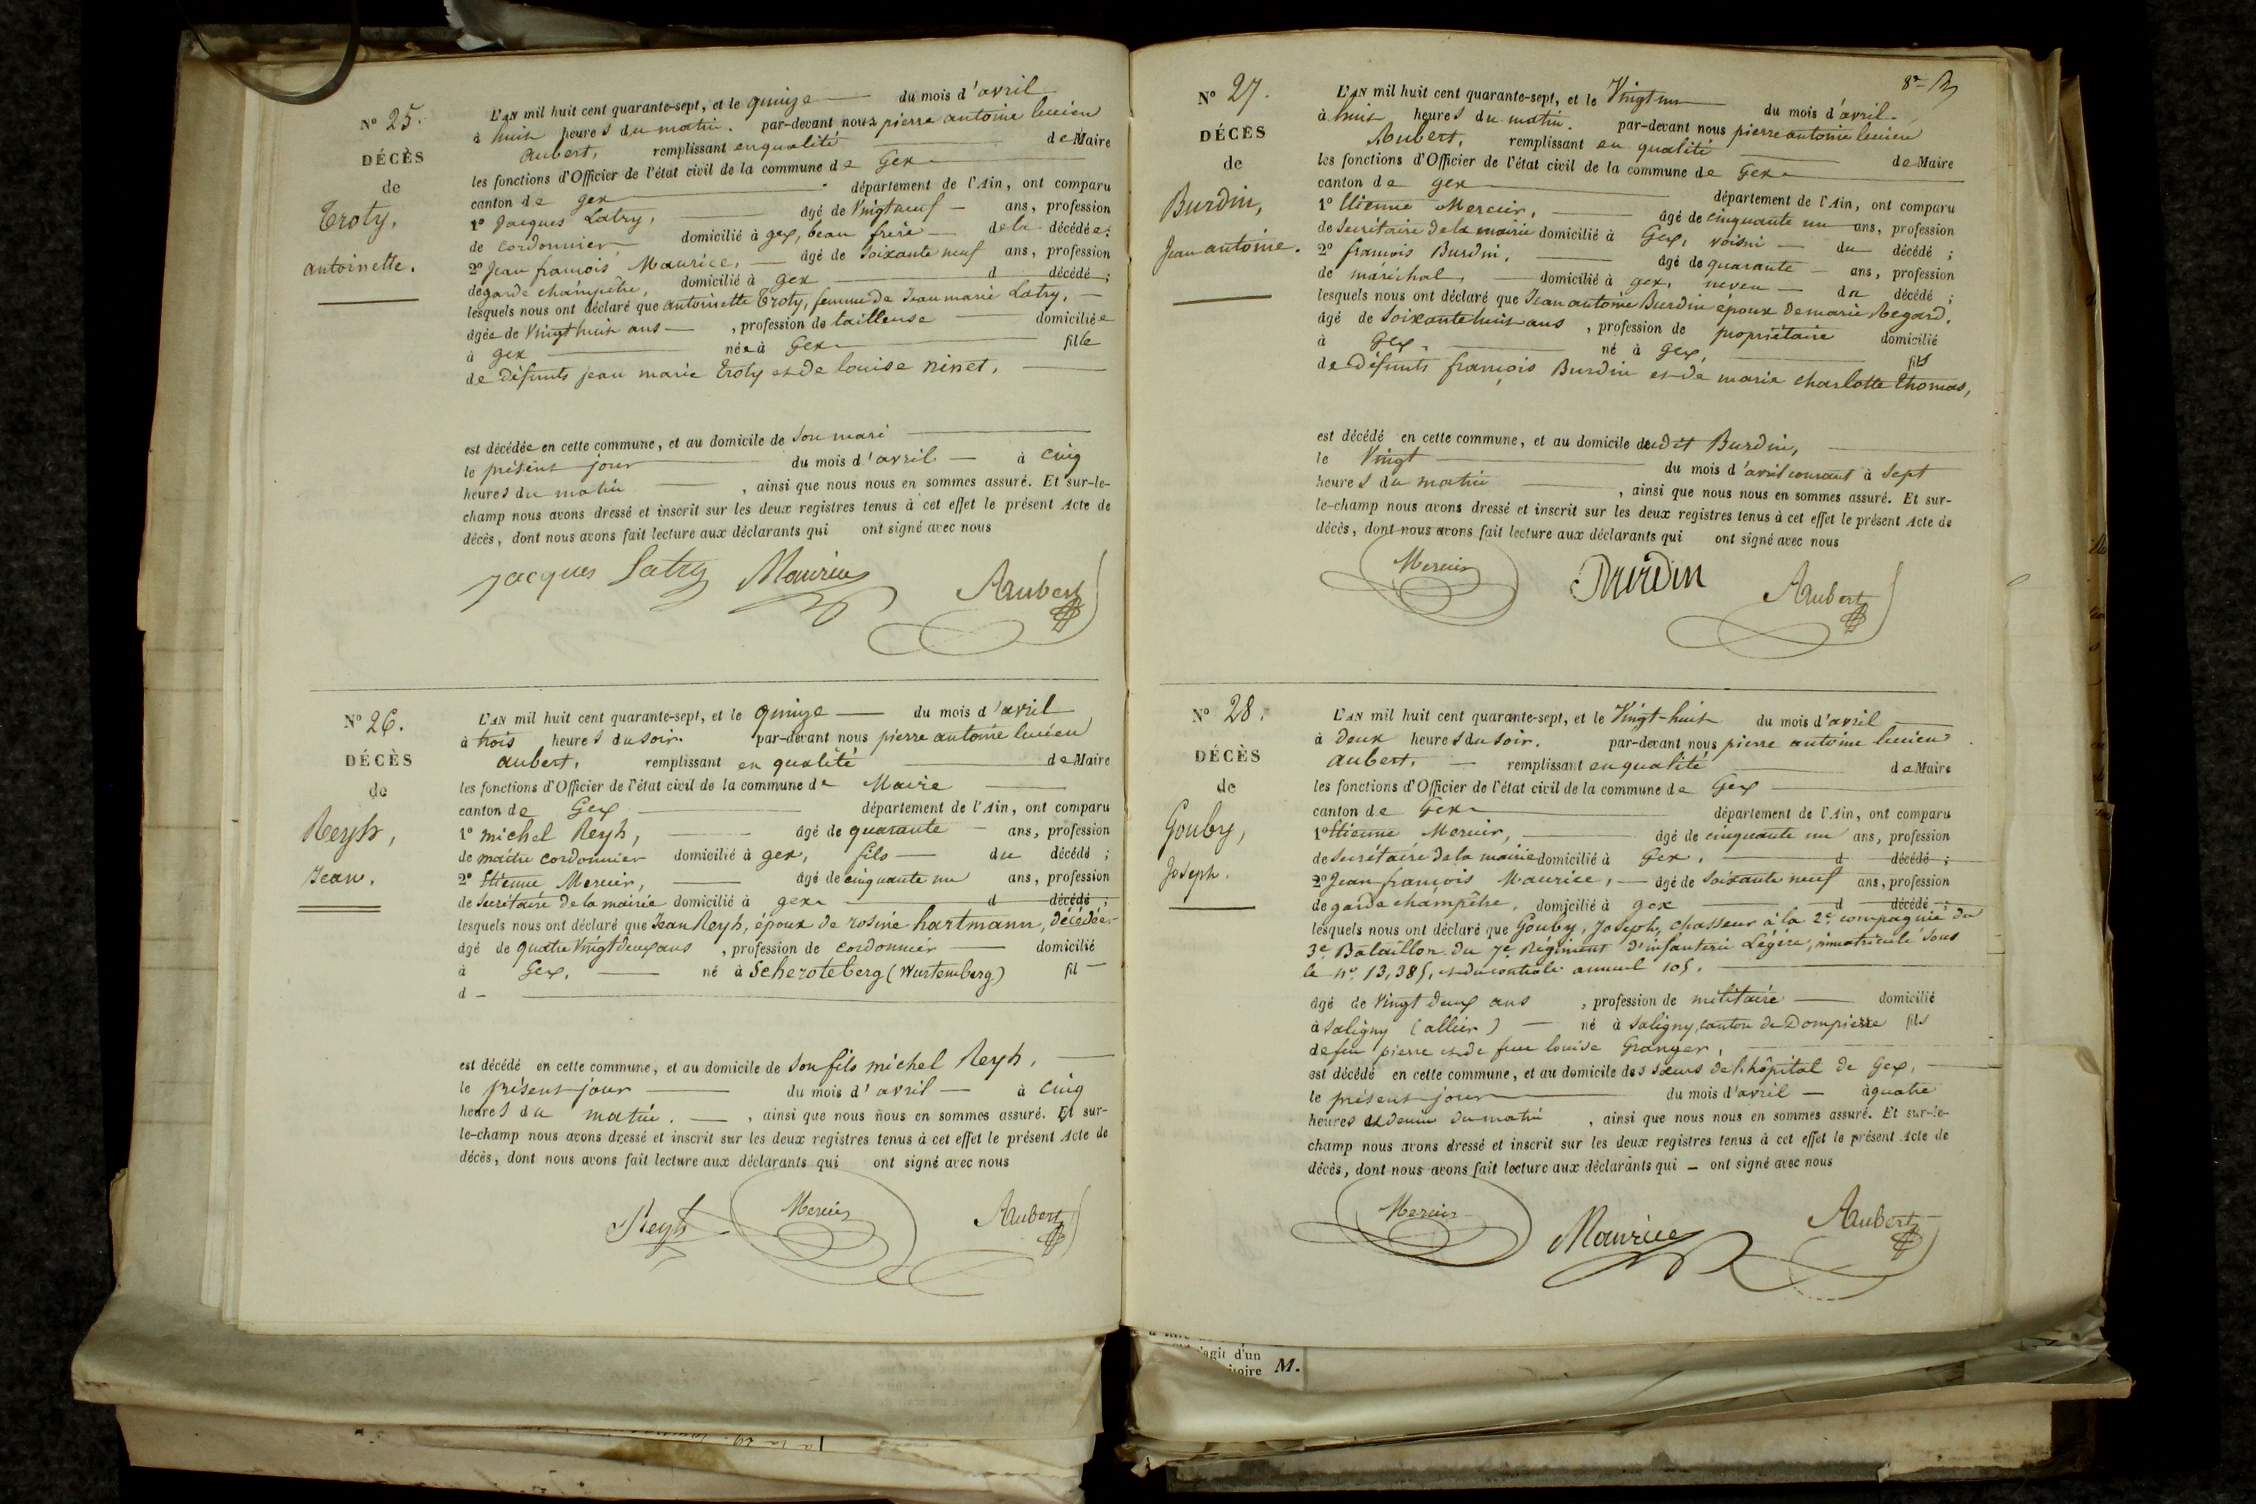 N° 25.
DÉCÈS
de
Troty,
antoinette.
L'AN mil huit cent quarante-sept, et le quinze du mois d'avril
à huit heures du matin. par-devant nous pierre antoine lucien
aubert, remplissant en qualité de Maire
les fonctions d'Officier de l'état civil de la commune de Gex
canton de gex département de l'Ain, ont comparu
1° Jacques Latry, âgé de Vingt neuf ans, profession
de cordonnier domicilié à gex, beau frère de la décédée;
2° Jean françois Maurice, âgé de Soixante neuf ans, profession
de garde champêtre, domicilié à gex d décédé;
lesquels nous ont déclaré que antoinette Troty, femme de Jean marie Latry,
âgée de Vingt huit ans, profession de tailleuse domiciliée
à gex née à Gex fille
de défunts jean marie Troty et de louise ninet,
est décédée en cette commune, et au domicile de son mari
le présent jour du mois d'avril à cinq
heures du matin, ainsi que nous nous en sommes assuré. Et sur-le-
champ nous avons dressé et inscrit sur les deux registres tenus à cet effet le présent Acte de
décès, dont nous avons fait lecture aux déclarants qui ont signé avec nous
Jacques Latry Maurice Aubert
N° 26.
DÉCÈS
de
Reyh,
Jean.
L'AN mil huit cent quarante-sept, et le quinze du mois d'avril
à trois heures du soir. par-devant nous pierre antoine lucien
aubert, remplissant en qualité de Maire
les fonctions d'Officier de l'état civil de la commune de Maire
canton de Gex département de l'Ain, ont comparu
1° michel Reyh, âgé de quarante ans, profession
de maître cordonnier domicilié à gex, fils du décédé;
2° Etienne Mercier, âgé de cinquante un ans, profession
de secrétaire de la mairie domicilié à gex d décédé;
lesquels nous ont déclaré que Jean Reyh, époux de rosine hartmann, décédée
âgé de quatre Vingt deux ans, profession de cordonnier domicilié
à Gex, né à Scheroteberg (Wurtemberg) fil
d
est décédé en cette commune, et au domicile de son fils michel Reyh,
le présent jour du mois d'avril à cinq
heures du matin., ainsi que nous nous en sommes assuré. Et sur-
le-champ nous avons dressé et inscrit sur les deux registres tenus à cet effet le présent Acte de
décès, dont nous avons fait lecture aux déclarants qui ont signé avec nous
Reyh Mercier Aubert
N° 27.
DÉCÈS
de
Burdin,
Jean antoine.
L'AN mil huit cent quarante-sept, et le Vingt un du mois d'avril.
à huit heures du matin. par-devant nous pierre antoine lucien
Aubert, remplissant en qualité de Maire
les fonctions d'Officier de l'état civil de la commune de Gex
canton de gex département de l'Ain, ont comparu
1° Etienne Mercier, âgé de cinquante un ans, profession
de Secrétaire de la mairie domicilié à Gex, voisin du décédé;
2° françois Burdin, âgé de quarante ans, profession
de maréchal, domicilié à gex, neveu du décédé;
lesquels nous ont déclaré que Jean antoine Burdin époux de marie Regard,
âgé de Soixante huit ans, profession de propriétaire domicilié
à Gex, né à Gex, fils
de défunts françois Burdin et de marie charlotte thomas,
est décédé en cette commune, et au domicile dudit Burdin,
le Vingt du mois d'avril courant à Sept
heures du matin, ainsi que nous nous en sommes assuré. Et sur-
le-champ nous avons dressé et inscrit sur les deux registres tenus à cet effet le présent Acte de
décès, dont nous avons fait lecture aux déclarants qui ont signé avec nous
Mercier Burdin Aubert
N° 28.
DÉCÈS
de
Gouby,
Joseph.
L'AN mil huit cent quarante-sept, et le Vingt-huit du mois d'avril
à deux heures du soir. par-devant nous pierre antoine lucien
aubert, remplissant en qualité de Maire
les fonctions d'Officier de l'état civil de la commune de Gex
canton de Gex département de l'Ain, ont comparu
1° Etienne Mercier, âgé de cinquante un ans, profession
de secrétaire de la mairie domicilié à Gex, d décédé;
2° Jean françois Maurice, âgé de soixante neuf ans, profession
de garde champêtre, domicilié à gex d décédé;
lesquels nous ont déclaré que Gouby, Joseph, chasseur à la 2e compagnie du
3e Bataillon du 7e Régiment d'infanterie Légère, immatriculé sous
le n° 13,385, et du contrôle annuel 105,
âgé de Vingt deux ans, profession de militaire domicilié
à Saligny (allier) né à Saligny, canton de Dompierre fils
de feu pierre et de feue louise Granger,
est décédé en cette commune, et au domicile des sœurs de l'hôpital de Gex,
le présent jour du mois d'avril à quatre
heures et demie du matin, ainsi que nous nous en sommes assuré. Et sur-le-
champ nous avons dressé et inscrit sur les deux registres tenus à cet effet le présent Acte de
décès, dont nous avons fait lecture aux déclarants qui ont signé avec nous
Mercier Maurice Aubert
s'agit d'un
M.